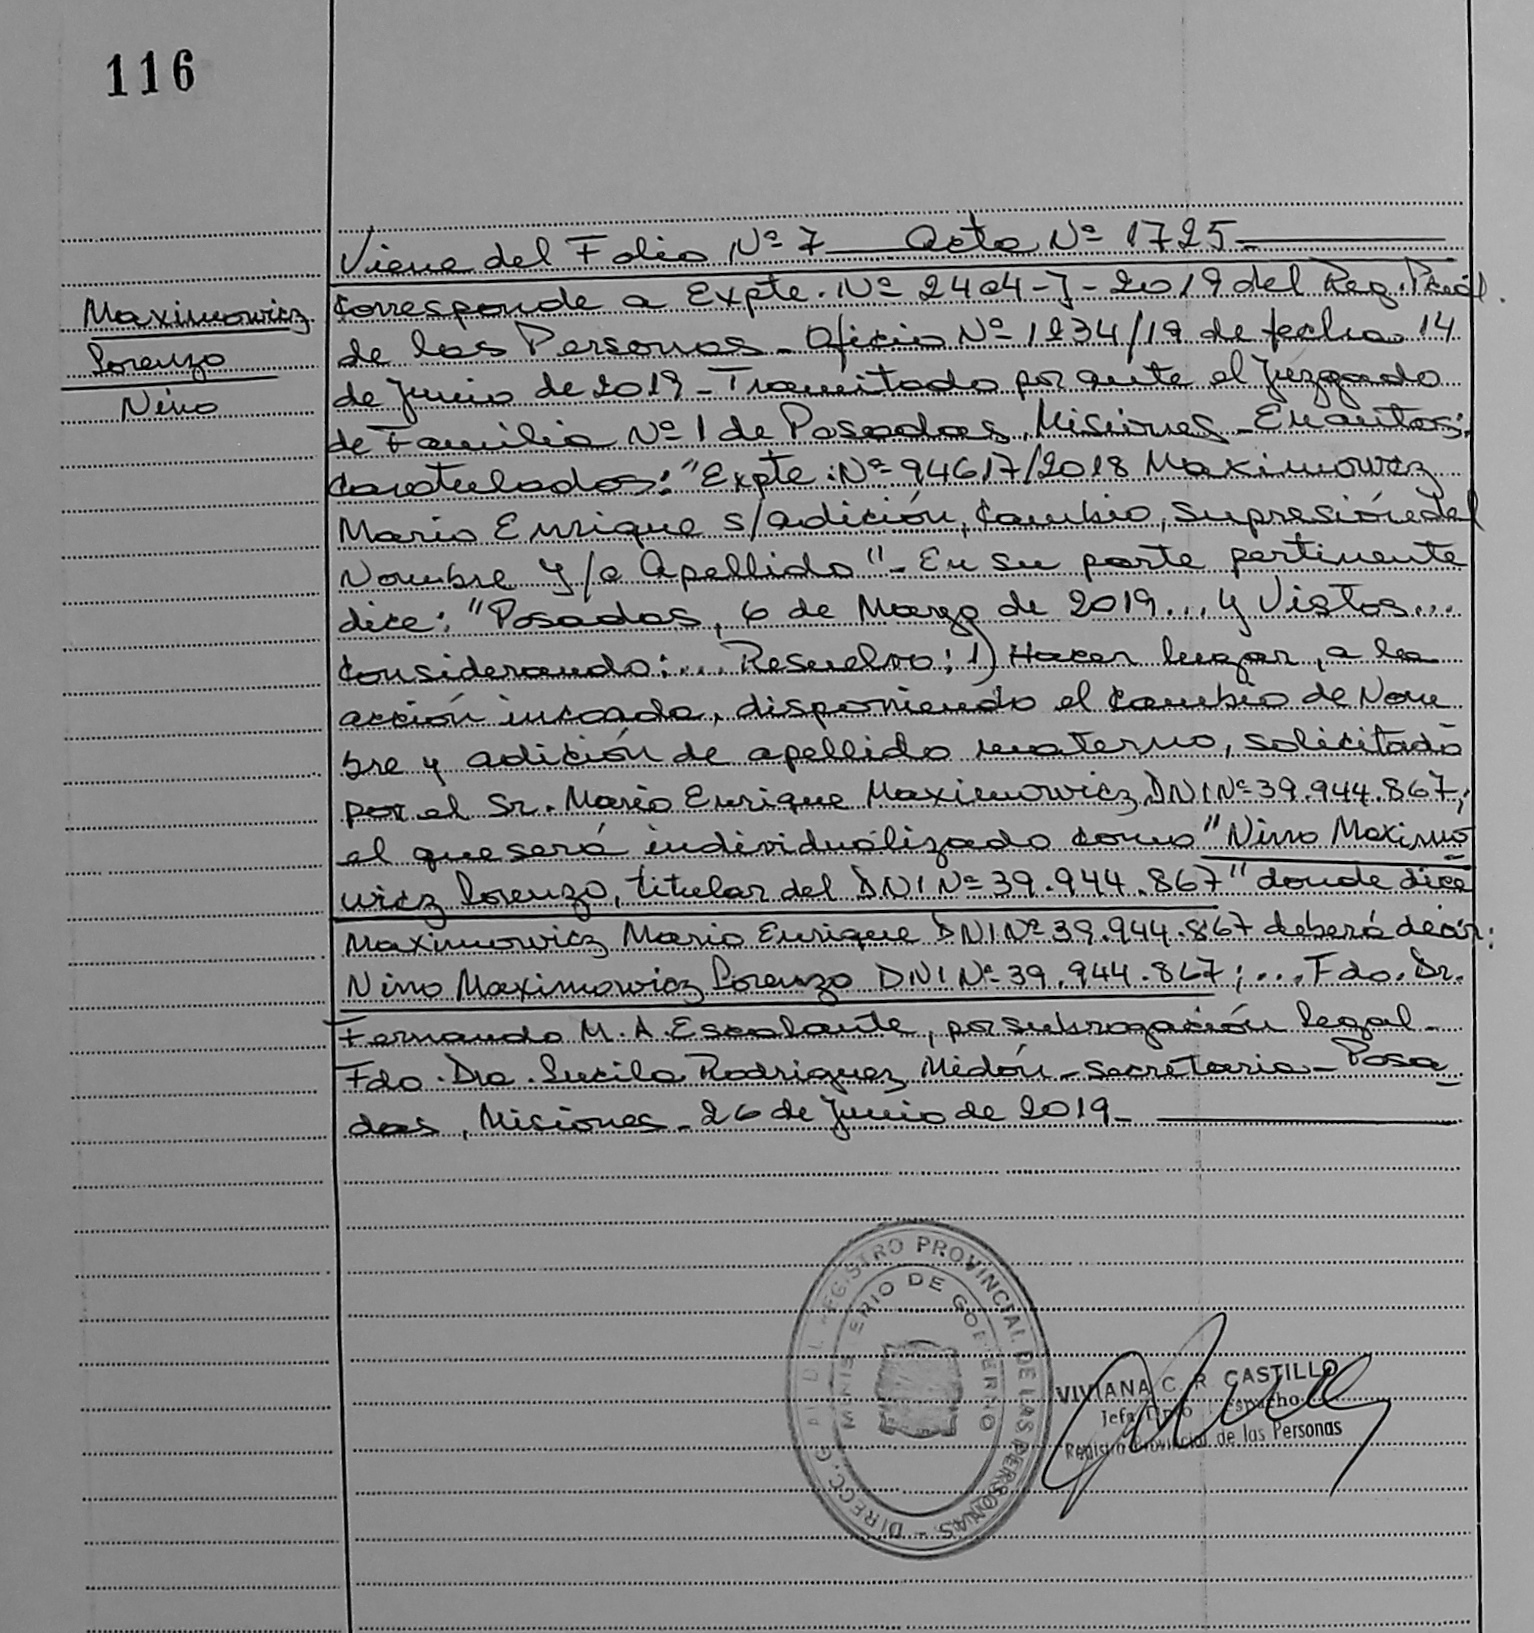 116
Viene del Folio Nº 7 — Acta Nº 1725 —
Maximowicz
Lorenzo
Nino
Corresponde a Expte. Nº 2404-J-2019 del Reg. Pcial.
de las Personas - Oficio Nº 1234/19 de fecha 14
de Junio de 2019 - Tramitado por ante el Juzgado
de Familia Nº 1 de Posadas, Misiones - En autos:
Caratulados: "Expte. Nº 94617/2018 Maximowicz
Mario Enrique s/adición, Cambio, Supresión del
Nombre y/o Apellido" - En su parte pertinente
dice: "Posadas, 6 de Marzo de 2019... y Vistos...
Considerando:... Resuelvo: 1) Hacer lugar, a la
acción incoada, disponiendo el Cambio de Nom
bre y adición de apellido materno, solicitado
por el Sr. Mario Enrique Maximowicz DNI Nº 39.944.867;
el que será individualizado como "Nino Maximo
wicz Lorenzo, titular del DNI Nº 39.944.867" donde dice
Maximowicz Mario Enrique DNI Nº 39.944.867 deberá decir:
Nino Maximowicz Lorenzo DNI Nº 39.944.867;... Fdo. Dr.
Fernando M. A. Escalante, por subrogación legal -
Fdo. Dra. Lucila Rodriguez Midón - Secretaria - Posa
das, Misiones - 26 de Junio de 2019 -
DIRECC. G DEL REGISTRO PROVINCIAL DE LAS PERSONAS -
MINISTERIO DE GOBIERNO
VIVIANA C. R. CASTILLO
Jefa Dpto Despacho
Registro Provincial de las Personas